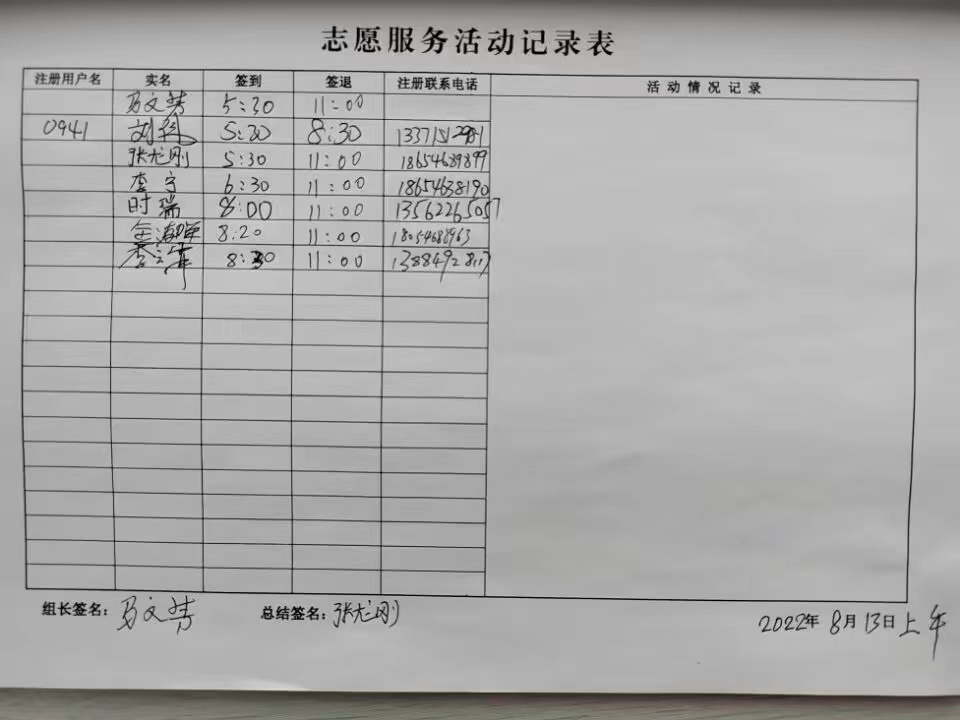 志愿服务活动记录表
注册用户名 实名 签到 签退 注册联系电话 活动情况记录
马文芳 5:30 11:00
0941 刘 5:30 8:30
张龙刚 5:30 11:00 18654689899
李宁 6:30 11:00 18654638190
时瑞 8:00 11:00 13562265057
8:20 11:00 18054688963
李 8:30 11:00
组长签名: 马文芳 总结签名: 张龙刚
2022年 8月 13日上午